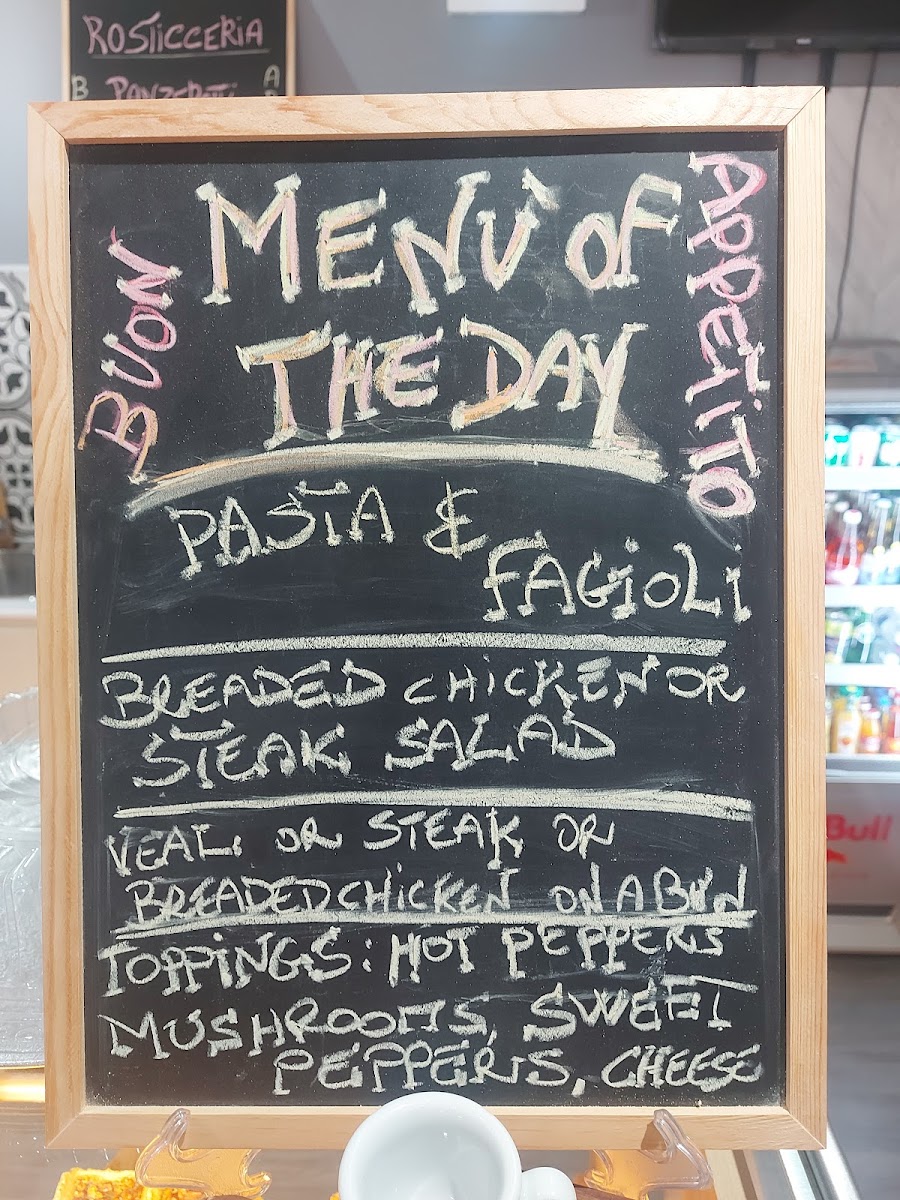 ROSTICCERIA
B PANZEROTTI A
BUON
MENU' OF
THE DAY
APPETITO
PASTA &
FAGIOLI
BREADED CHICKEN OR
STEAK SALAD
VEAL OR STEAK OR
BREADED CHICKEN ON A BUN
TOPPINGS: HOT PEPPERS
MUSHROOMS, SWEET
PEPPERS, CHEESE
Bull